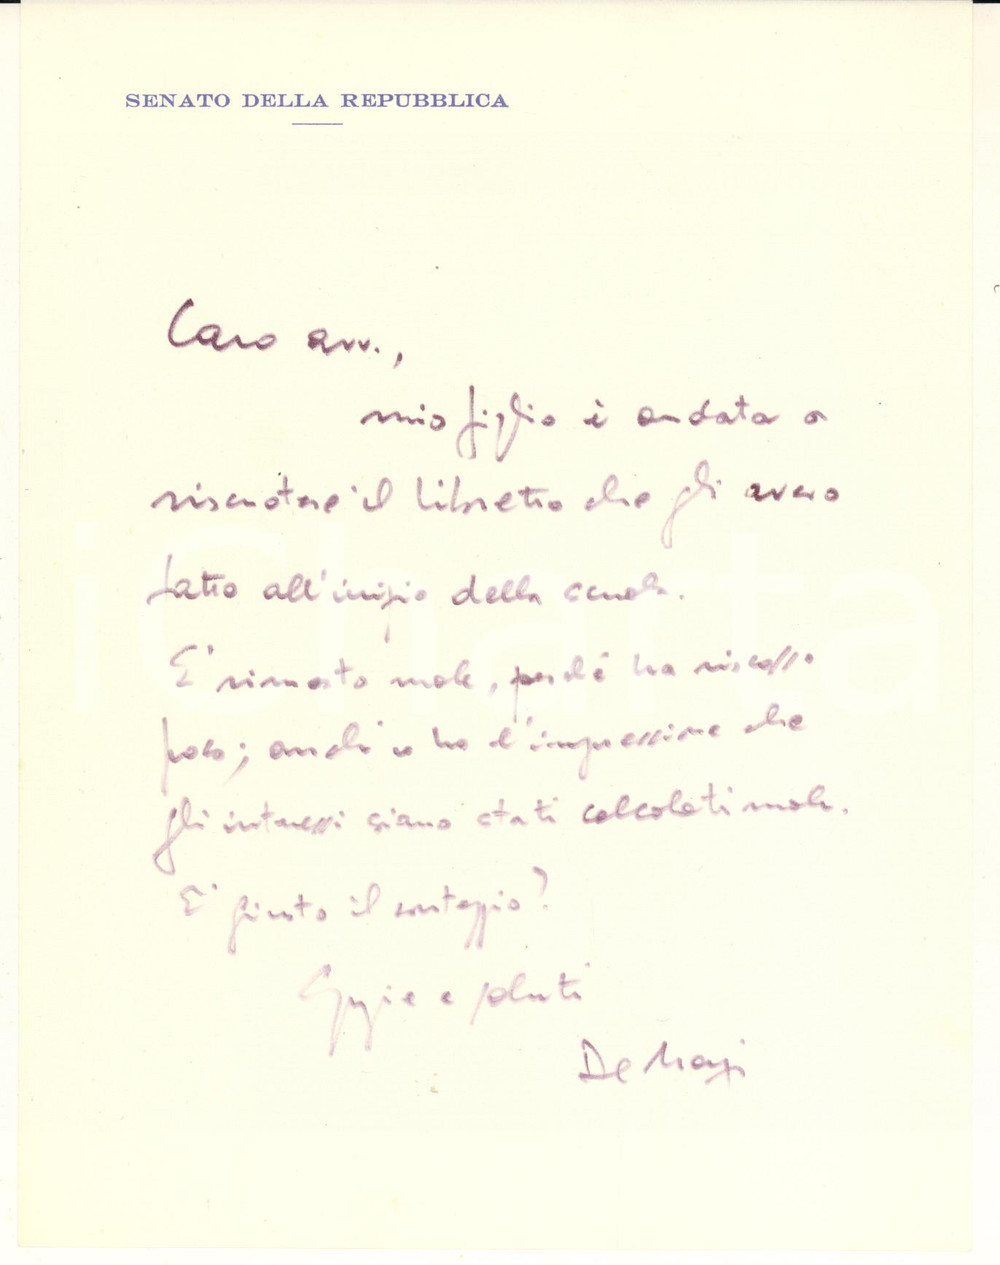 SENATO DELLA REPUBBLICA
Caro avv.,
mio figlio è andato a
riscuotere il libretto che gli avevo
fatto all'inizio della scuola.
E' rimasto male, perché ha riscosso
poco; anch'io ho l'impressione che
gli interessi siano stati calcolati male.
E' giusto il conteggio?
Grazie e saluti
iCharta